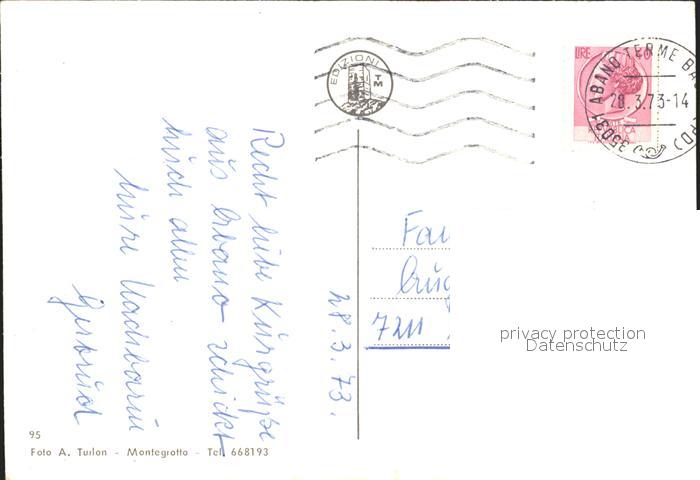 Recht liebe Kurgrüße
aus Abano schickt
Euch allen
Eure Nachbarin
Gertrud
28.3.73.
Fa
7211
EDIZIONI
TM
LIRE
35031 ABANO TERME
28.3.73-14
(PD)
privacy protection
Datenschutz
95
Foto A. Turlon - Montegrotto - Tel. 668193